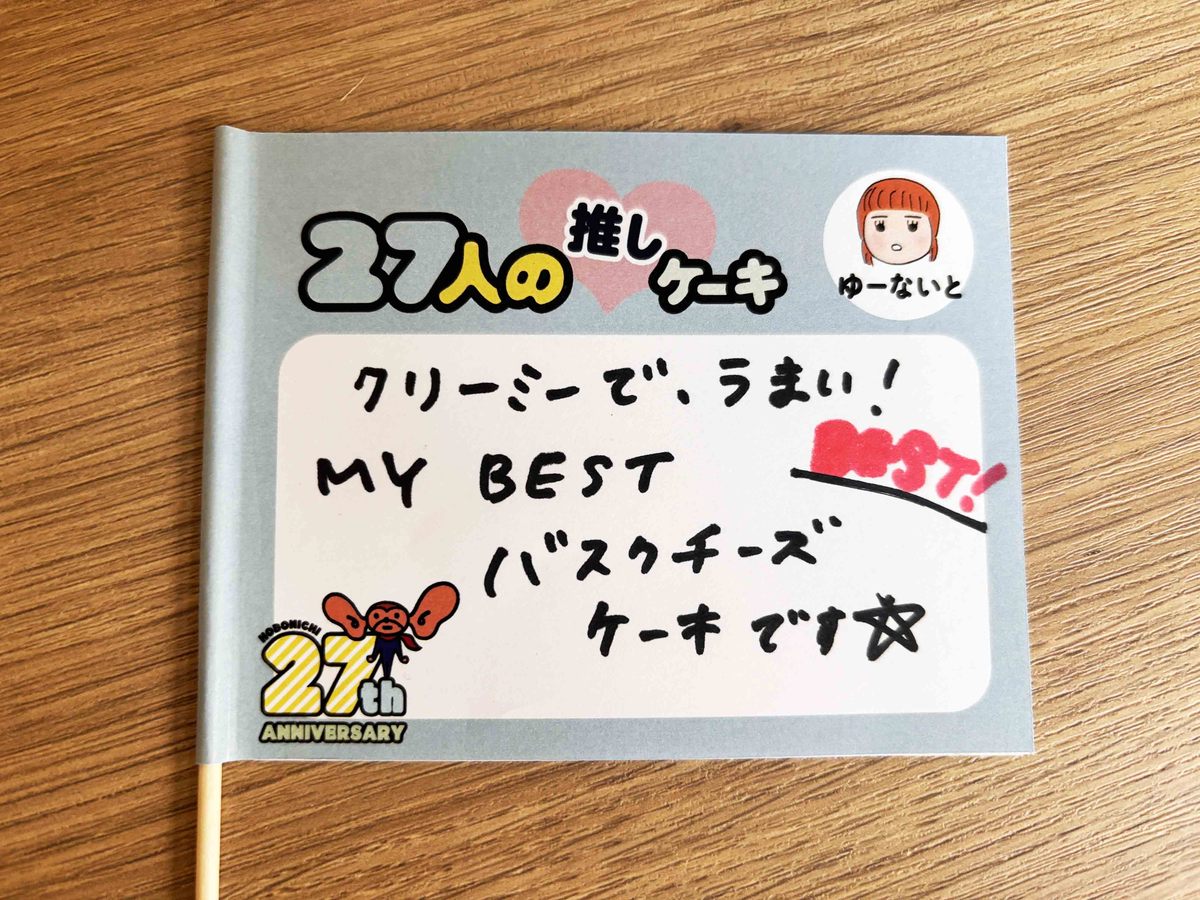 27人の推しケーキ
ゆーないと
クリーミーで、うまい!
BEST!
MY BEST
バスクチーズ
ケーキです☆
HOBONICHI
27th
ANNIVERSARY